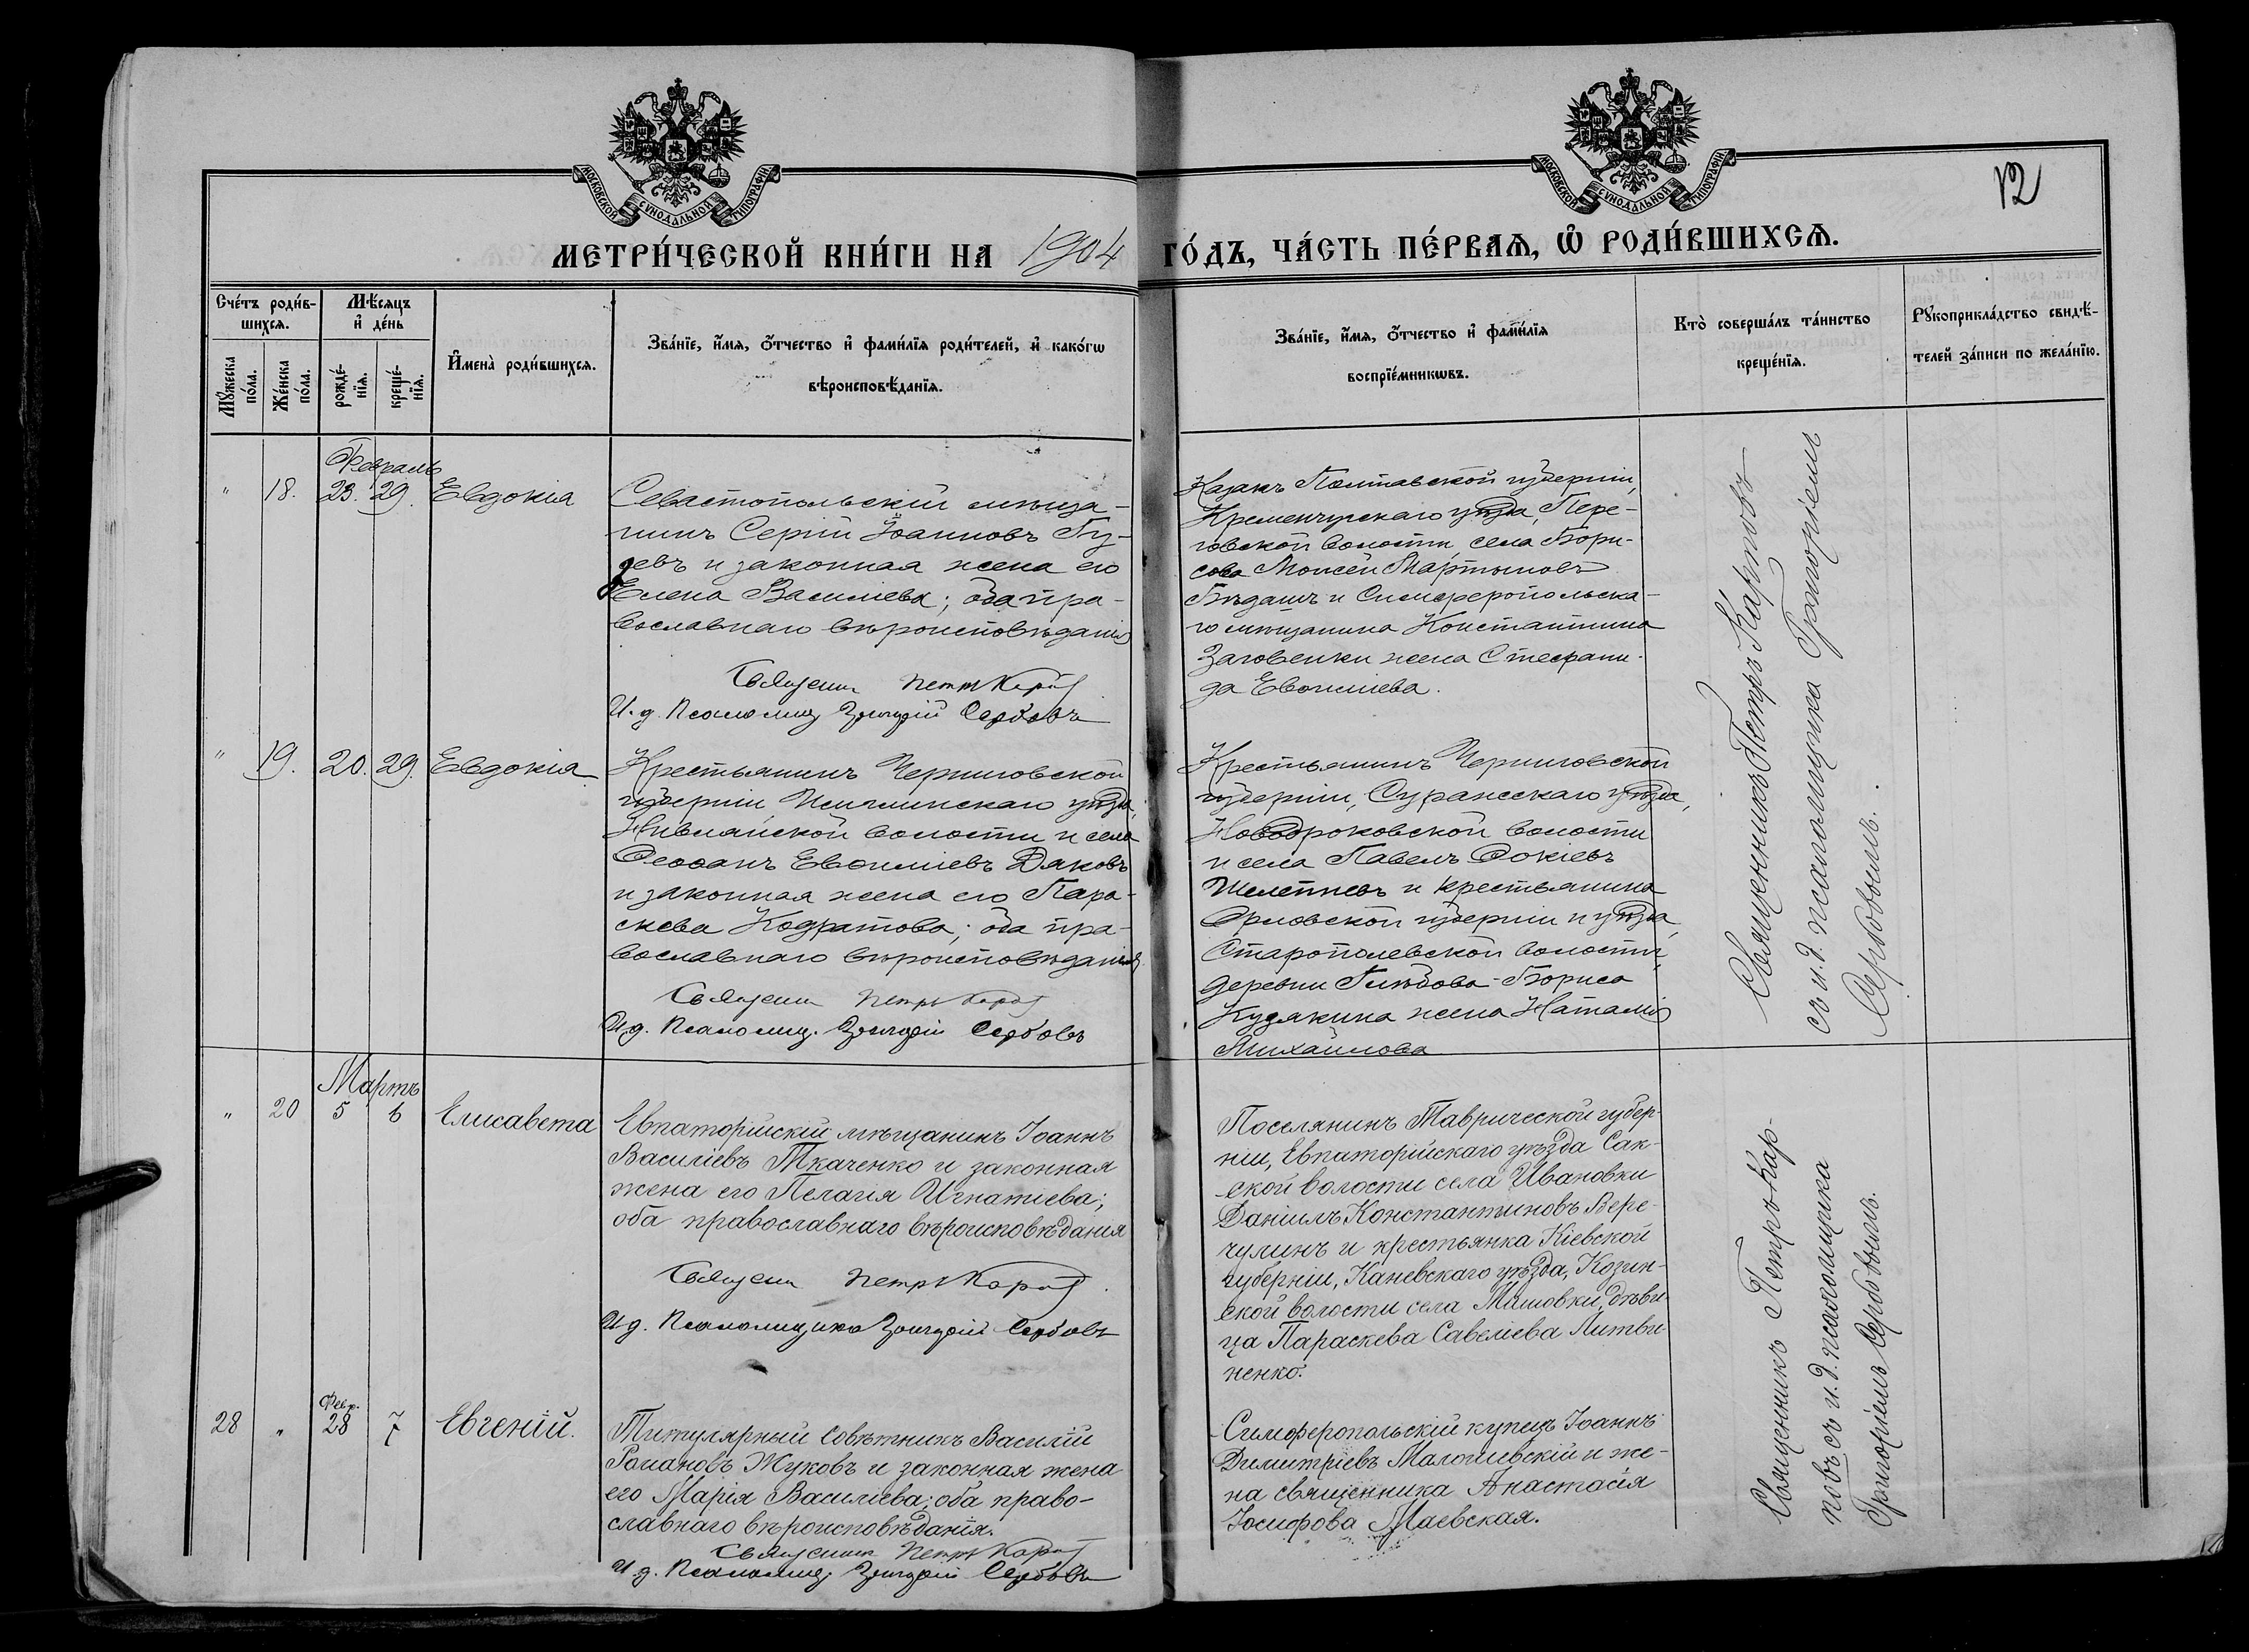 МОСКОВСКОЙ СѴНОДАЛЬНОЙ ТИПОГРАФІИ
МОСКОВСКОЙ СѴНОДАЛЬНОЙ ТИПОГРАФІИ
12
МЕТРИ́ЧЕСКОЙ КНИ́ГИ НА 1904 ГО́ДЪ, ЧА́СТЬ ПЕ́РВАѦ, Ѽ РОДИ́ВШИХСѦ.
Сче́тъ роди́в-
шихсѧ.
Мꙋ́жеска по́ла.
Же́нска по́ла.
Мѣ́сѧцъ
и҆ де́нь
рожде́-
нїѧ.
креще́-
нїѧ.
И҆мена̀ роди́вшихсѧ.
Зва́нїе, и҆́мѧ, ѻ҆́тчество и҆ фами́лїѧ роди́телей, и҆ како́гѡ
вѣроисповѣ́данїѧ.
Зва́нїе, и҆́мѧ, ѻ҆́тчество и҆ фами́лїѧ
воспрїе́мникѡвъ.
Кто̀ соверша́лъ та́инство
креще́нїѧ.
Рꙋкоприкла́дство свидѣ́-
телей за́писи по жела́нїю.
Февраль
" 18. 23. 29. Евдокія
Севастопольскій мѣща-
нинъ Сергій Іоанновъ Гу-
севъ и законная жена его
Елена Василіева; оба пра-
вославнаго вѣроисповѣданія
Священ. Петръ Карп
И. д. Псаломщ. Григорій Сербовъ
Казакъ Полтавской губерніи,
Кременчугскаго уѣзда, Пере-
говской волости, села Бори-
сова Моисей Мартыновъ
Бѣдашъ и Симферопольска-
го мѣщанина Константина
Заговенки жена Стефани-
да Евѳиміева.
" 19. 20. 29. Евдокія
Крестьянинъ Черниговской
губерніи, Мглинскаго уѣзда,
Нивлянской волости и села
Ѳеофанъ Евѳиміевъ Дяковъ
и законная жена его Пара-
скева Кодратова; оба пра-
вославнаго вѣроисповѣданія
Священ. Петръ Карп
И. д. Псаломщ. Григорій Сербовъ
Крестьянинъ Черниговской
губерніи, Суражскаго уѣзда,
Новодроковской волости
и села Павелъ Фокіевъ
Шелепневъ и крестьянина
Орловской губерніи и уѣзда,
Старополевской волости,
деревни Глѣбова Бориса
Кудякина жена Наталія
Михайлова
Священникъ Петръ Карповъ
съ и. д. псаломщика Григоріемъ
Сербовымъ.
Мартъ
" 20 5 6 Елисавета
Евпаторійскій мѣщанинъ Іоаннъ
Василіевъ Ткаченко и законная
жена его Пелагія Игнатіева;
оба православнаго вѣроисповѣданія
Священ. Петръ Карп
И д. Псаломщика Григорій Сербовъ
Поселянинъ Таврической губер-
ніи, Евпаторійскаго уѣзда Сак-
ской волости села Ивановки
Даніилъ Константиновъ Вере-
чулинъ и крестьянка Кіевской
губерніи, Каневскаго уѣзда, Козин-
ской волости села Машовки, дѣви-
ца Параскева Савеліева Литви-
ненко.
Февр.
28 " 28 7 Евгеній.
Титулярный совѣтникъ Василій
Романовъ Жуковъ и законная жена
его Марія Василіева; оба право-
славнаго вѣроисповѣданія.
Священник Петръ Карп
И д. Псаломщ. Григорій Сербовъ
Симферопольскій купецъ Іоаннъ
Димитріевъ Малошевскій и же-
на священника Анастасія
Іосифова Маевская.
Священникъ Петръ Кар-
повъ съ и. д. псаломщика
Григоріемъ Сербовымъ.